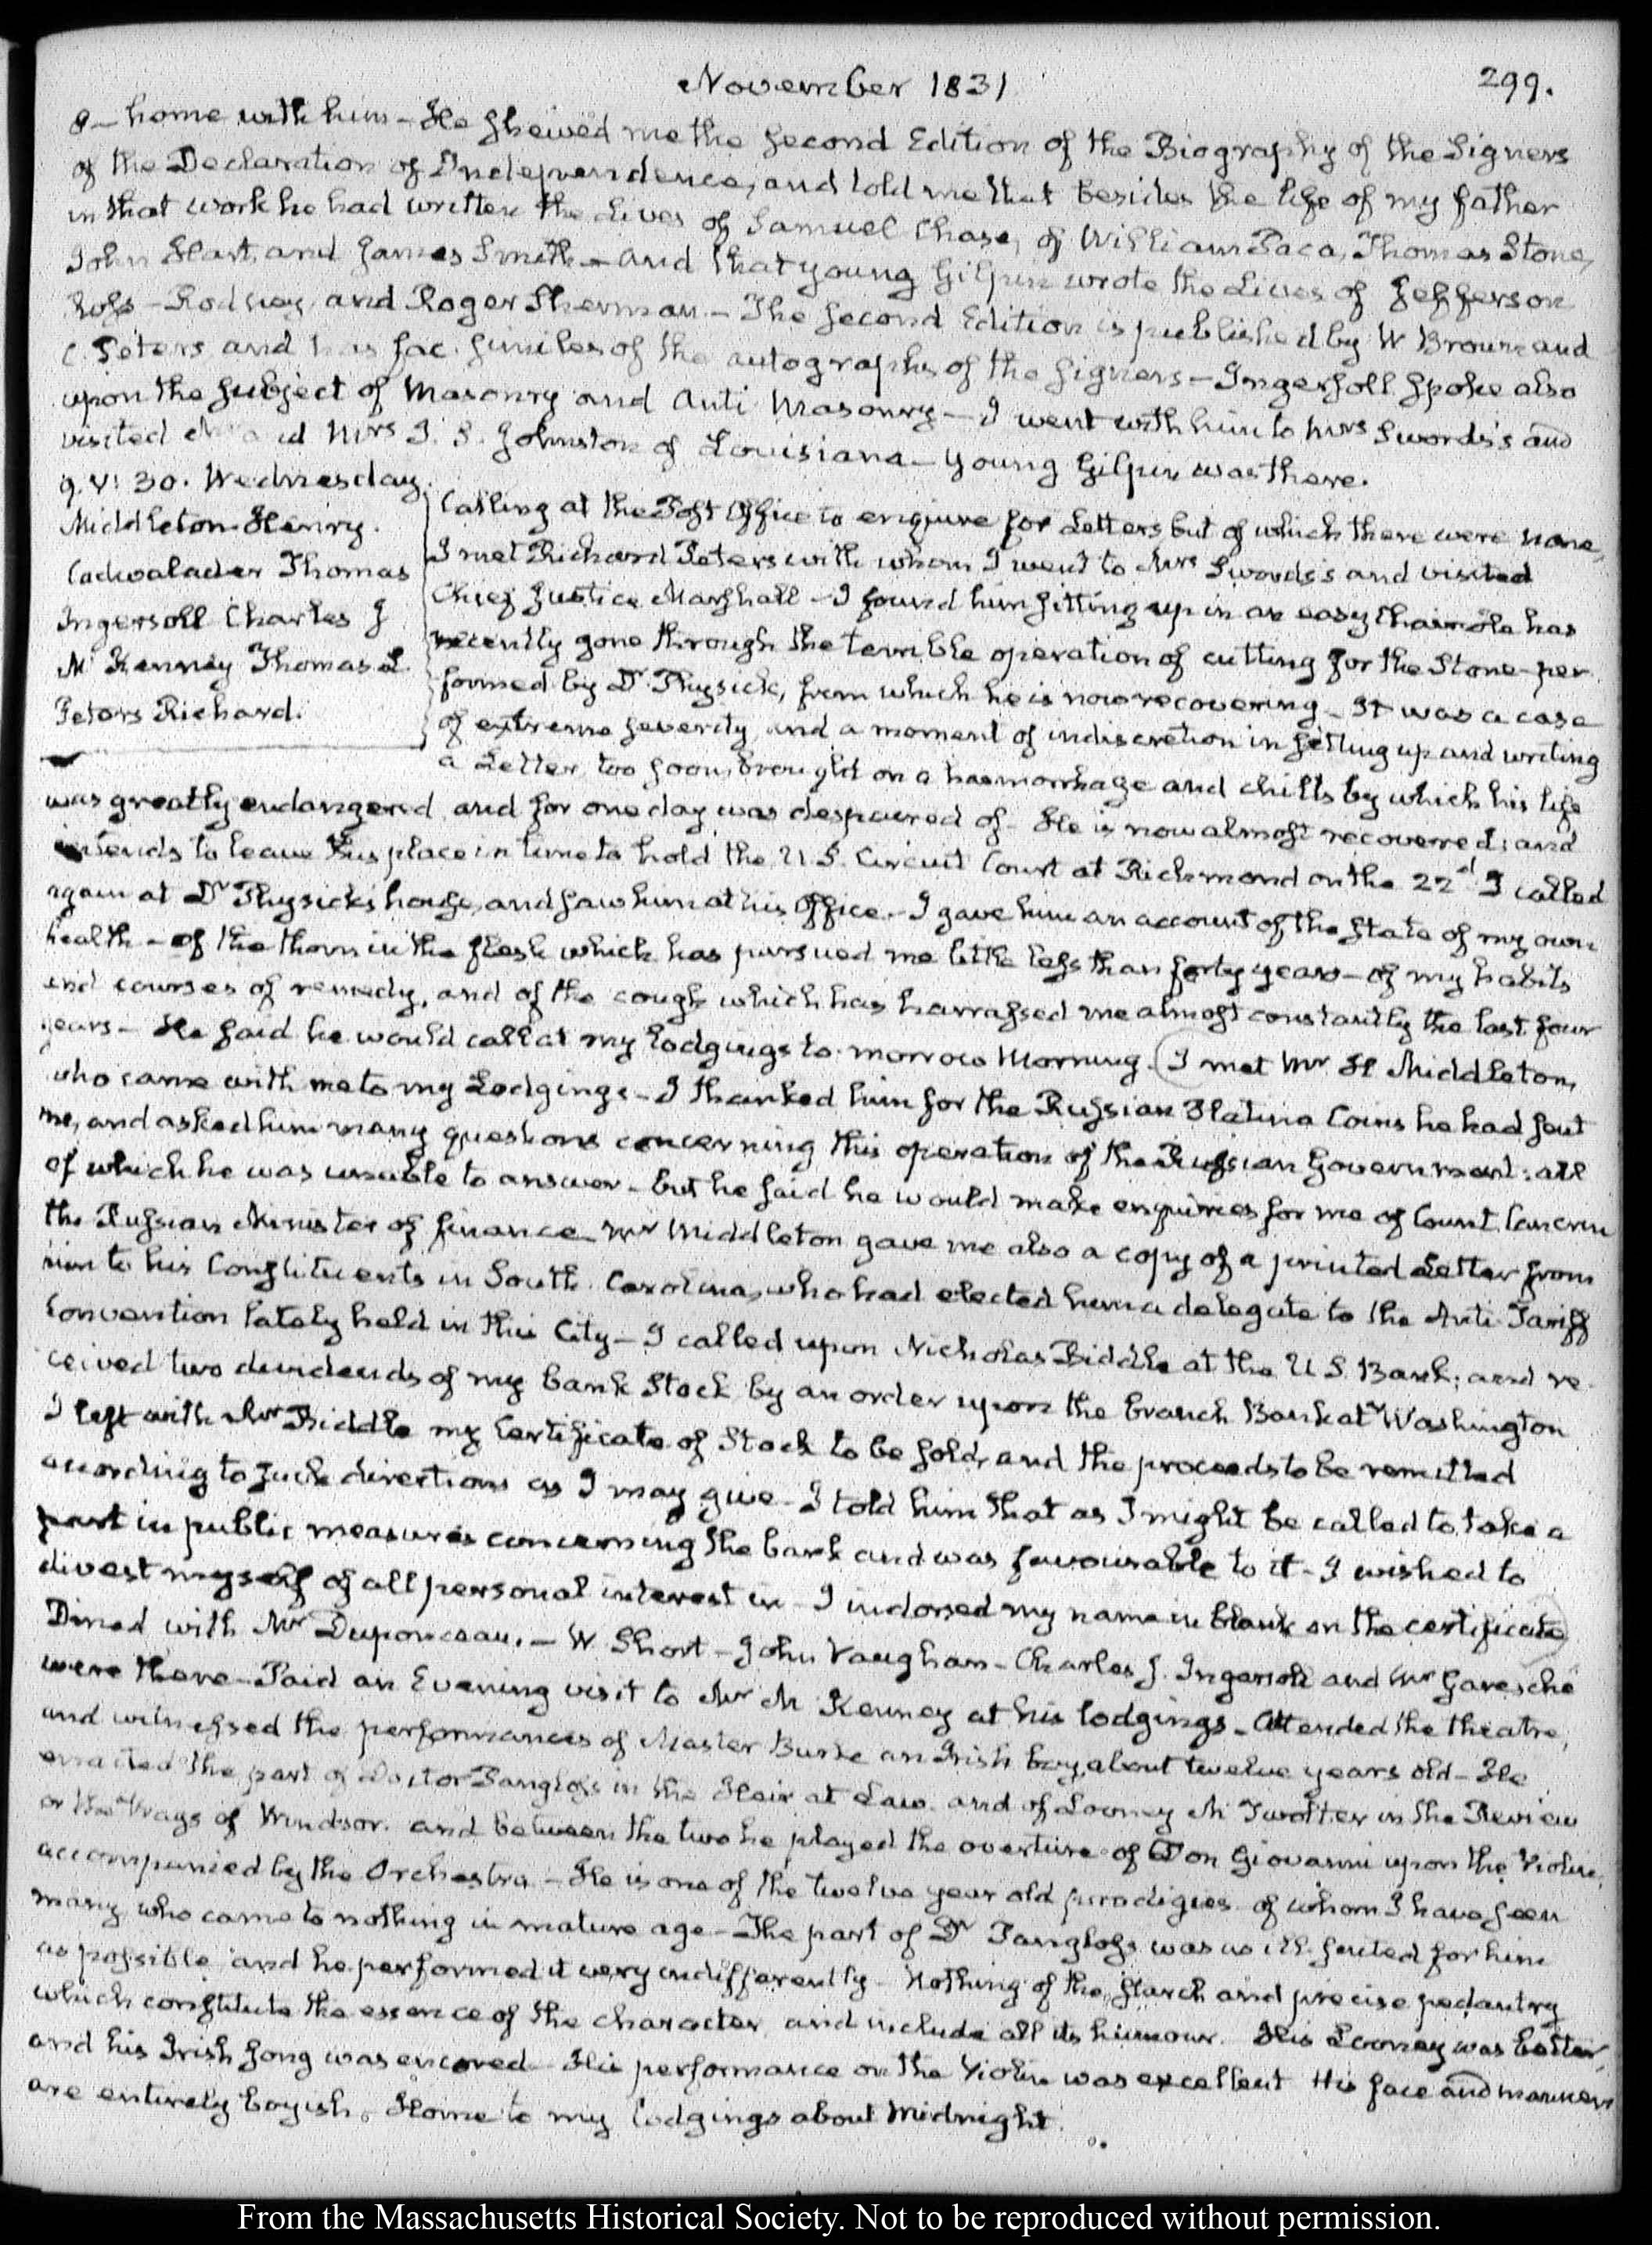 November 1831
299.
home with him — He shewed me the second Edition of the Biography of the Signers
of the Declaration of Independence, and told me that besides the life of my father
in that work he had written the Lives of Samuel Chase, of William Paca, Thomas Stone,
John Hart, and James Smith — and that young Gilpin wrote the Lives of Jefferson
Ross — Rodney, and Roger Sherman — The second Edition is published by W Brown and
C. Peters and has fac. similes of the autographs of the signers — Ingersoll spoke also
upon the subject of Masonry and Anti Masonry — I went with him to Mrs Swords's and
visited and Mrs J. S. Johnston of Louisiana — young Gilpin was there.
9. V: 30. Wednesday.
Middleton Henry.
Cadwalader Thomas
Ingersoll Charles J
Mc Kenney Thomas L
Peters Richard.
Calling at the Post Office to enquire for Letters but of which there were none,
I met Richard Peters with whom I went to Mrs Swords's and visited
Chief Justice Marshall — I found him sitting up in an easy chair. He has
recently gone through the terrible operation of cutting for the Stone — per
formed by Dr. Physick, from which he is now recovering — It was a case
of extreme severity, and a moment of indiscretion in sitting up and writing
a Letter too soon, brought on a haemorrhage and chills by which his life
was greatly endangered, and for one day was despaired of — He is now almost recovered; and
intends to leave this place in time to hold the U.S. Circuit Court at Richmond on the 22d I called
again at Dr Physick's house, and saw him at his Office — I gave him an account of the state of my own
health — of the thorn in the flesh which has pursued me little less than forty years — of my habits
and courses of remedy, and of the cough which has harrassed me almost constantly the last four
years — He said he would call at my lodgings to-morrow Morning. (I met Mr H Middleton,
who came with me to my Lodgings — I thanked him for the Russian Platina Coins he had sent
me, and asked him many questions concerning this operation of the Russian Government: all
of which he was unable to answer — but he said he would make enquiries for me of Count Cancrin
the Russian Minister of finance — Mr Middleton gave me also a copy of a printed Letter from
him to his Constituents in South Carolina, who had elected him a delegate to the Anti Tariff
Convention lately held in this City — I called upon Nicholas Biddle at the U.S. Bank; and re
ceived two dividends of my bank Stock by an order upon the branch Bank at Washington
I left with Mr Biddle my Certificate of Stock to be sold, and the proceeds to be remitted
according to such directions as I may give — I told him that as I might be called to take a
part in public measures concerning the bank and was favourable to it — I wished to
divest myself of all personal interest in — I indorsed my name in blank on the certificate)
Dined with Mr Duponceau. — W. Short — John Vaughan — Charles J. Ingersoll and Mr Garesché
were there — Paid an Evening visit to Mr Mc Kenney at his lodgings — Attended the theatre,
and witnessed the performances of Master Burke an Irish boy about twelve years old — He
enacted the part of Doctor Pangloss in the Heir at Law. and of Looney Mc Twolter in the Review
or the Wags of Windsor. and between the two he played the overture of Don Giovanni upon the Violin,
accompanied by the Orchestra — He is one of the twelve year old prodigies of whom I have seen
many who came to nothing in mature age — The part of Dr Pangloss was as ill suited for him
as possible, and he performed it very indifferently — Nothing of the starch and precise pedantry
which constitute the essence of the character, and include all its humour. His Looney was better,
and his Irish song was encored — His performance on the Violin was excellent His face and manners
are entirely boyish. Home to my lodgings about Midnight.
From the Massachusetts Historical Society. Not to be reproduced without permission.